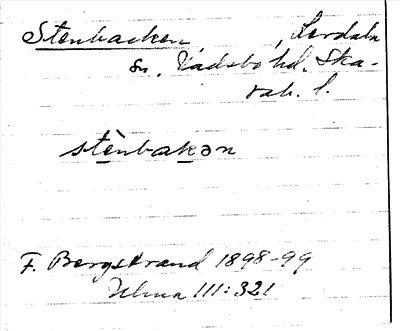 Stenbacken, Lerdala
sn, Vadsbo hd. Ska-
rab. l.
stènbakən
F. Bergstrand 1898-99
Ulma 111:321